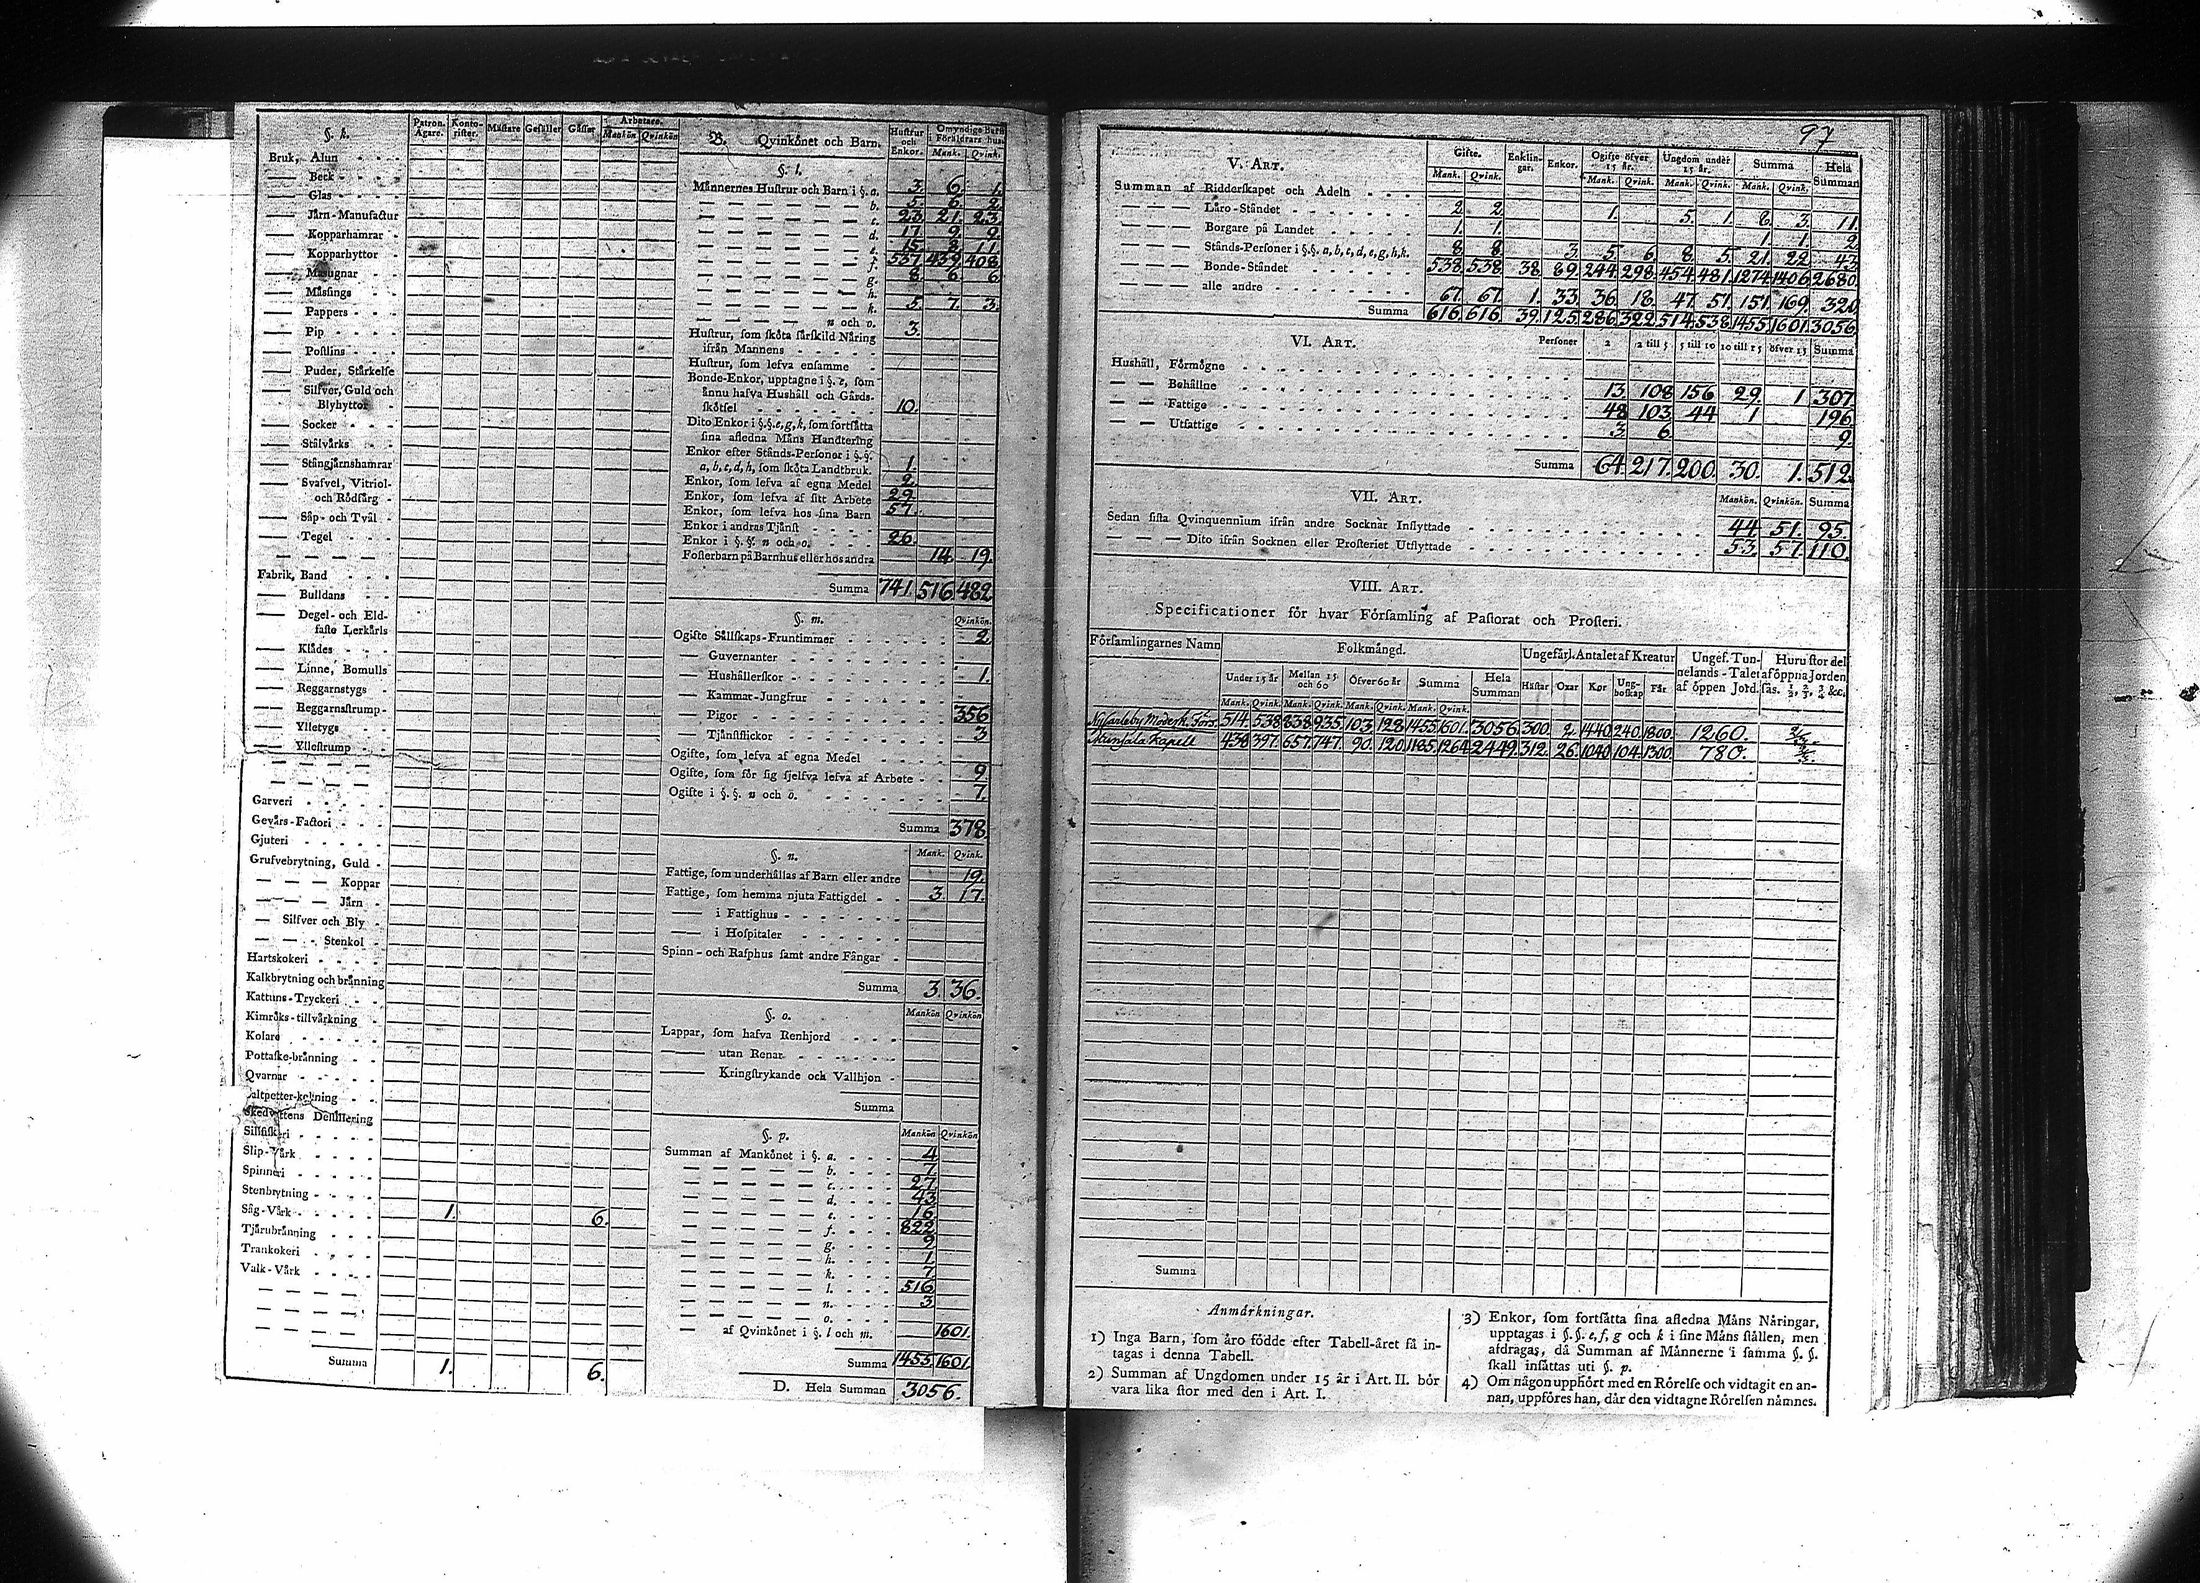 §. k.
Patron. Ägare. Konto-rister. Mästare Gesäller Gåssar Arbetare. Mankön Qvinkön
Bruk, Alun
— Beck
— Glas
— Järn-Manufactur
— Kopparhamrar
— Kopparhyttor
— Masugnar
— Mässings
— Pappers
— Pip
— Postlins
— Puder, Stärkelse
— Silfver, Guld och
Blyhyttor
— Socker
— Stålvårks
— Stångjärnshamrar
— Svafvel, Vitriol-
och Rödfärg
— Såp- och Tvål
— Tegel
Fabrik, Band
— Bulldans
— Degel- och Eld-
faste Lerkärls
— Klädes
— Linne, Bomulls
— Reggarnstygs
— Reggarnsstrump-
— Ylletygs
— Yllestrump
Garveri
Gevårs-Factori
Gjuteri
Grufvebrytning, Guld
— — — Koppar
— — — Järn
— Silfver och Bly
— — Stenkol
Hartskokeri
Kalkbrytning och bränning
Kattuns-Tryckeri
Kimröks-tillvårkning
Kolare
Pottaske-bränning
Qvarnar
altpetter-kokning
Skedvattens Destillering
Sillfiskeri
Slip-Vårk
Spinneri
Stenbrytning
Såg-Vårk 1. 6.
Tjärubränning
Trankokeri
Valk-Vårk
Summa 1. 6.
B. Qvinkönet och Barn. Hustrur och Enkor. Omyndige Barn i Föräldrars hus. Mank. Qvink.
§. l.
Männernes Hustrur och Barn i §. a. 3. 6. 1.
b. 5. 6. 2.
c. 23. 21. 23.
d. 17. 9. 9.
e. 15. 8. 11.
f. 537. 439. 408.
g. 8. 6. 6.
h.
k. 5. 7. 3.
n och o.
Hustrur, som sköta särskild Näring 3.
ifrån Mannens
Hustrur, som lefva ensamme
Bonde-Enkor, upptagne i §. e, som
ännu hafva Hushåll och Gårds-
skötsel 10.
Dito Enkor i §.§. e, g, k, som fortsätta
sina afledna Mäns Handtering
Enkor efter Stånds-Personer i §.§.
a, b, c, d, h, som sköta Landtbruk. 1.
Enkor, som lefva af egna Medel 2.
Enkor, som lefva af sitt Arbete 29.
Enkor, som lefva hos sina Barn 57.
Enkor i andras Tjänst
Enkor i §.§. n och o. 26.
Fosterbarn på Barnhus eller hos andra 14. 19.
Summa 741. 516. 482
§. m. Qvinkön.
Ogifte Sällskaps-Fruntimmer 2.
— Guvernanter
— Hushållerskor 1.
— Kammar-Jungfrur
— Pigor 356
— Tjänstflickor 3
Ogifte, som lefva af egna Medel
Ogifte, som för sig sjelfva lefva af Arbete 9
Ogifte i §.§. n och o. 7.
Summa 378
§. n. Mank. Qvink.
Fattige, som underhållas af Barn eller andre 19.
Fattige, som hemma njuta Fattigdel 3. 17.
— i Fattighus
— i Hospitaler
Spinn- och Rasphus samt andre Fångar
Summa 3. 36.
§. o. Mankön Qvinkön
Lappar, som hafva Renhjord
— utan Renar
— Kringstrykande och Vallhjon
Summa
§. p. Mankön Qvinkön
Summan af Mankönet i §. a. 4
b. 7.
c. 27
d. 43
e. 16
f. 822
g. 9
h. 1
k. 7
l. 516
n. 3
o.
— af Qvinkönet i §. l och m. 1601.
Summa 1455 1601.
D. Hela Summan 3056.
97
V. ART. Gifte. Mank. Qvink. Enklin-gar. Enkor. Ogifte öfver 15 år. Mank. Qvink. Ungdom under 15 år. Mank. Qvink. Summa Mank. Qvink. Hela Summan
Summan af Ridderskapet och Adeln
— — — Läro-Ståndet 2. 2. 1. 5. 1. 8. 3. 11.
— — — Borgare på Landet 1. 1. 1. 1. 2.
— — — Stånds-Personer i §.§. a, b, c, d, e, g, h, k. 8. 8. 3. 5. 6. 8. 5. 21. 22. 43
— — — Bonde-Ståndet 538. 538. 38. 89. 244. 298. 454. 481. 1274. 1406. 2680.
— — — alle andre 67. 67. 1. 33. 36. 18. 47. 51. 151. 169. 320
Summa 616. 616. 39. 125. 286. 322. 514. 538. 1455. 1601. 3056.
VI. ART. Personer 2 2 till 5 5 till 10 10 till 15 öfver 15 Summa
Hushåll, Förmögne
— — Behållne 13. 108 156 29. 1 307.
— — Fattige 48 103. 44 1 196.
— — Utfattige 3. 6. 9.
Summa 64. 217. 200. 30. 1. 512
VII. ART. Mankön. Qvinkön. Summa
Sedan sista Qvinquennium ifrån andre Socknar Inflyttade 44. 51. 95.
— — — Dito ifrån Socknen eller Prosteriet Utflyttade 53. 57. 110.
VIII. ART.
Specificationer för hvar Församling af Pastorat och Prosteri.
Församlingarnes Namn Folkmängd. Ungefärl. Antalet af Kreatur Ungef. Tun-nelands-Talet af öppen Jord. Huru stor del af öppna Jorden sås. ½, ⅔, ¾ &c.
Under 15 år Mellan 15 och 60 Öfver 60 år Summa Hela Summan Hästar Oxar Kor Ung-boskap Får
Mank. Qvink. Mank. Qvink. Mank. Qvink. Mank. Qvink.
Nycarleby Moderk. Förs. 514. 538 838 935. 103. 128. 1455. 1601. 3056. 300. 2. 1440. 240. 1800. 1260.
Munsala Kapell 438 397. 657. 747. 90. 120. 1185. 1264. 2449. 312. 26. 1040. 104. 1300. 780.
Summa
Anmärkningar.
1) Inga Barn, som äro födde efter Tabell-året få in-
tagas i denna Tabell.
2) Summan af Ungdomen under 15 år i Art. II. bör
vara lika stor med den i Art. I.
3) Enkor, som fortsätta sina afledna Mäns Näringar,
upptagas i §.§. e, f, g och k i sine Mäns ställen, men
afdragas, då Summan af Männerne i samma §.§.
skall insättas uti §. p.
4) Om någon upphört med en Rörelse och vidtagit en an-
nan, uppföres han, där den vidtagne Rörelsen nämnes.